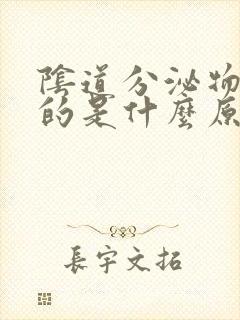 陰道分泌物
的是什麼原
長宇文拓